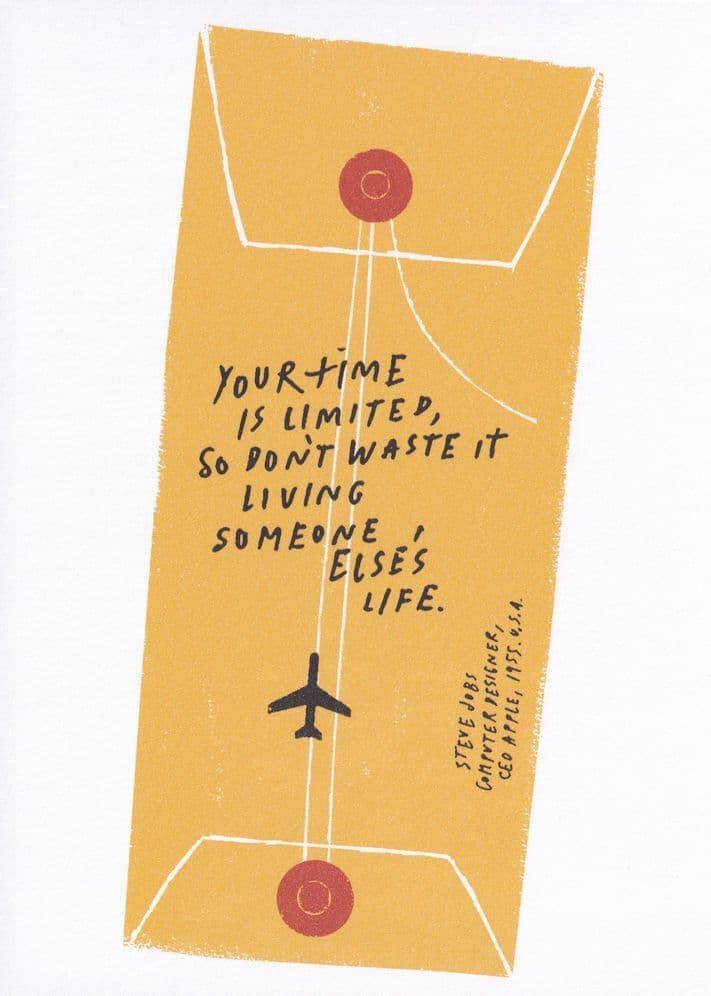 YOUR TIME
IS LIMITED,
SO DON'T WASTE IT
LIVING
SOMEONE
ELSE'S
LIFE.
STEVE JOBS
COMPUTER DESIGNER,
CEO APPLE, 1955. U.S.A.